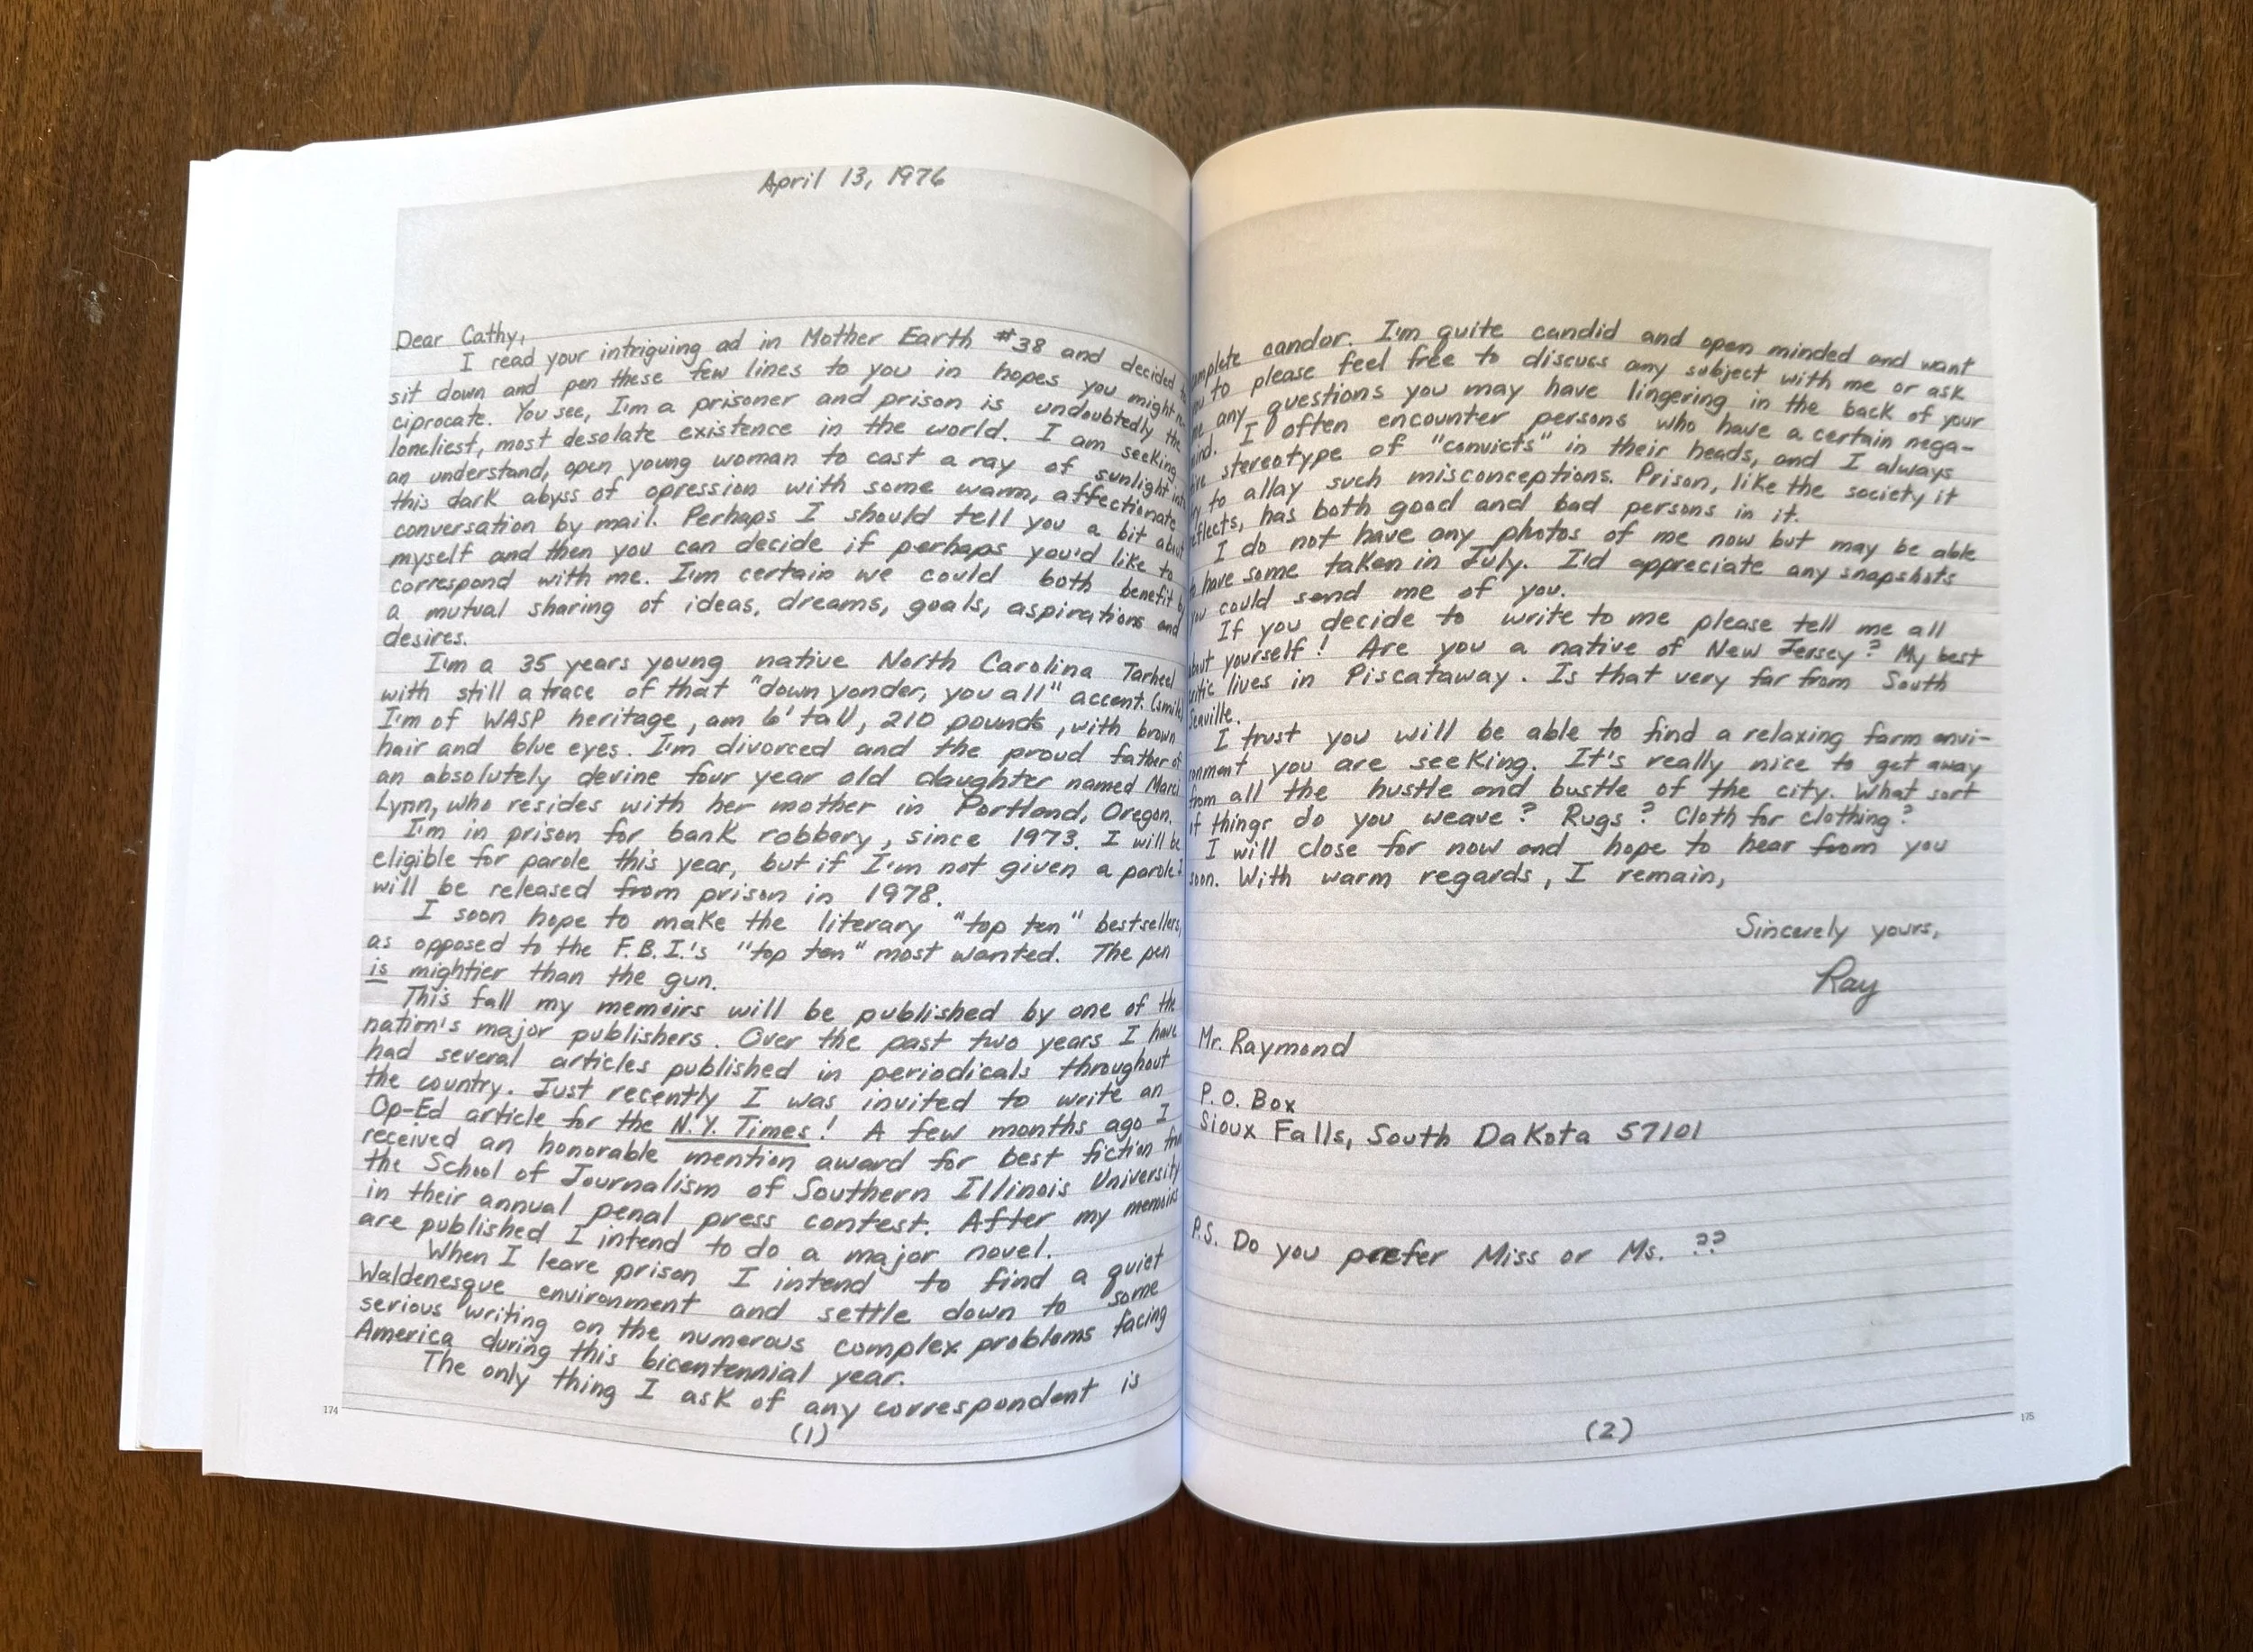 April 13, 1976
Dear Cathy,
I read your intriguing ad in Mother Earth #38 and decided
sit down and pen these few lines to you in hopes you might
ciprocate. You see, I'm a prisoner and prison is undoubtedly the
loneliest, most desolate existence in the world. I am seeking
an understand, open young woman to cast a ray of sunlight into
this dark abyss of opression with some warm, affectionate
conversation by mail. Perhaps I should tell you a bit about
myself and then you can decide if perhaps you'd like to
correspond with me. I'm certain we could both benefit by
a mutual sharing of ideas, dreams, goals, aspirations and
desires.
I'm a 35 years young native North Carolina Tarheel
with still a trace of that "down yonder, you all" accent. (smile)
I'm of WASP heritage, am 6' tall, 210 pounds, with brown
hair and blue eyes. I'm divorced and the proud father of
an absolutely devine four year old daughter named Marci
Lynn, who resides with her mother in Portland, Oregon.
I'm in prison for bank robbery, since 1973. I will be
eligible for parole this year, but if I'm not given a parole I
will be released from prison in 1978.
I soon hope to make the literary "top ten" bestsellers,
as opposed to the F.B.I.'s "top ten" most wanted. The pen
is mightier than the gun.
This fall my memoirs will be published by one of the
nation's major publishers. Over the past two years I have
had several articles published in periodicals throughout
the country. Just recently I was invited to write an
Op-Ed article for the N.Y. Times! A few months ago I
received an honorable mention award for best fiction from
the School of Journalism of Southern Illinois University
in their annual penal press contest. After my memoirs
are published I intend to do a major novel.
When I leave prison I intend to find a quiet
Waldenesque environment and settle down to some
serious writing on the numerous complex problems facing
America during this bicentennial year.
The only thing I ask of any correspondent is
(1)
174
mplete candor. I'm quite candid and open minded and want
you to please feel free to discuss any subject with me or ask
me any questions you may have lingering in the back of your
mind. I often encounter persons who have a certain nega-
tive stereotype of "convicts" in their heads, and I always
try to allay such misconceptions. Prison, like the society it
eflects, has both good and bad persons in it.
I do not have any photos of me now but may be able
to have some taken in July. I'd appreciate any snapshots
you could send me of you.
If you decide to write to me please tell me all
about yourself! Are you a native of New Jersey? My best
critic lives in Piscataway. Is that very far from South
Seaville.
I trust you will be able to find a relaxing farm envi-
ronment you are seeking. It's really nice to get away
from all the hustle and bustle of the city. What sort
of things do you weave? Rugs? Cloth for clothing?
I will close for now and hope to hear from you
soon. With warm regards, I remain,
Sincerely yours,
Ray
Mr. Raymond
P.O. Box
Sioux Falls, South Dakota 57101
P.S. Do you prefer Miss or Ms. ??
(2)
175